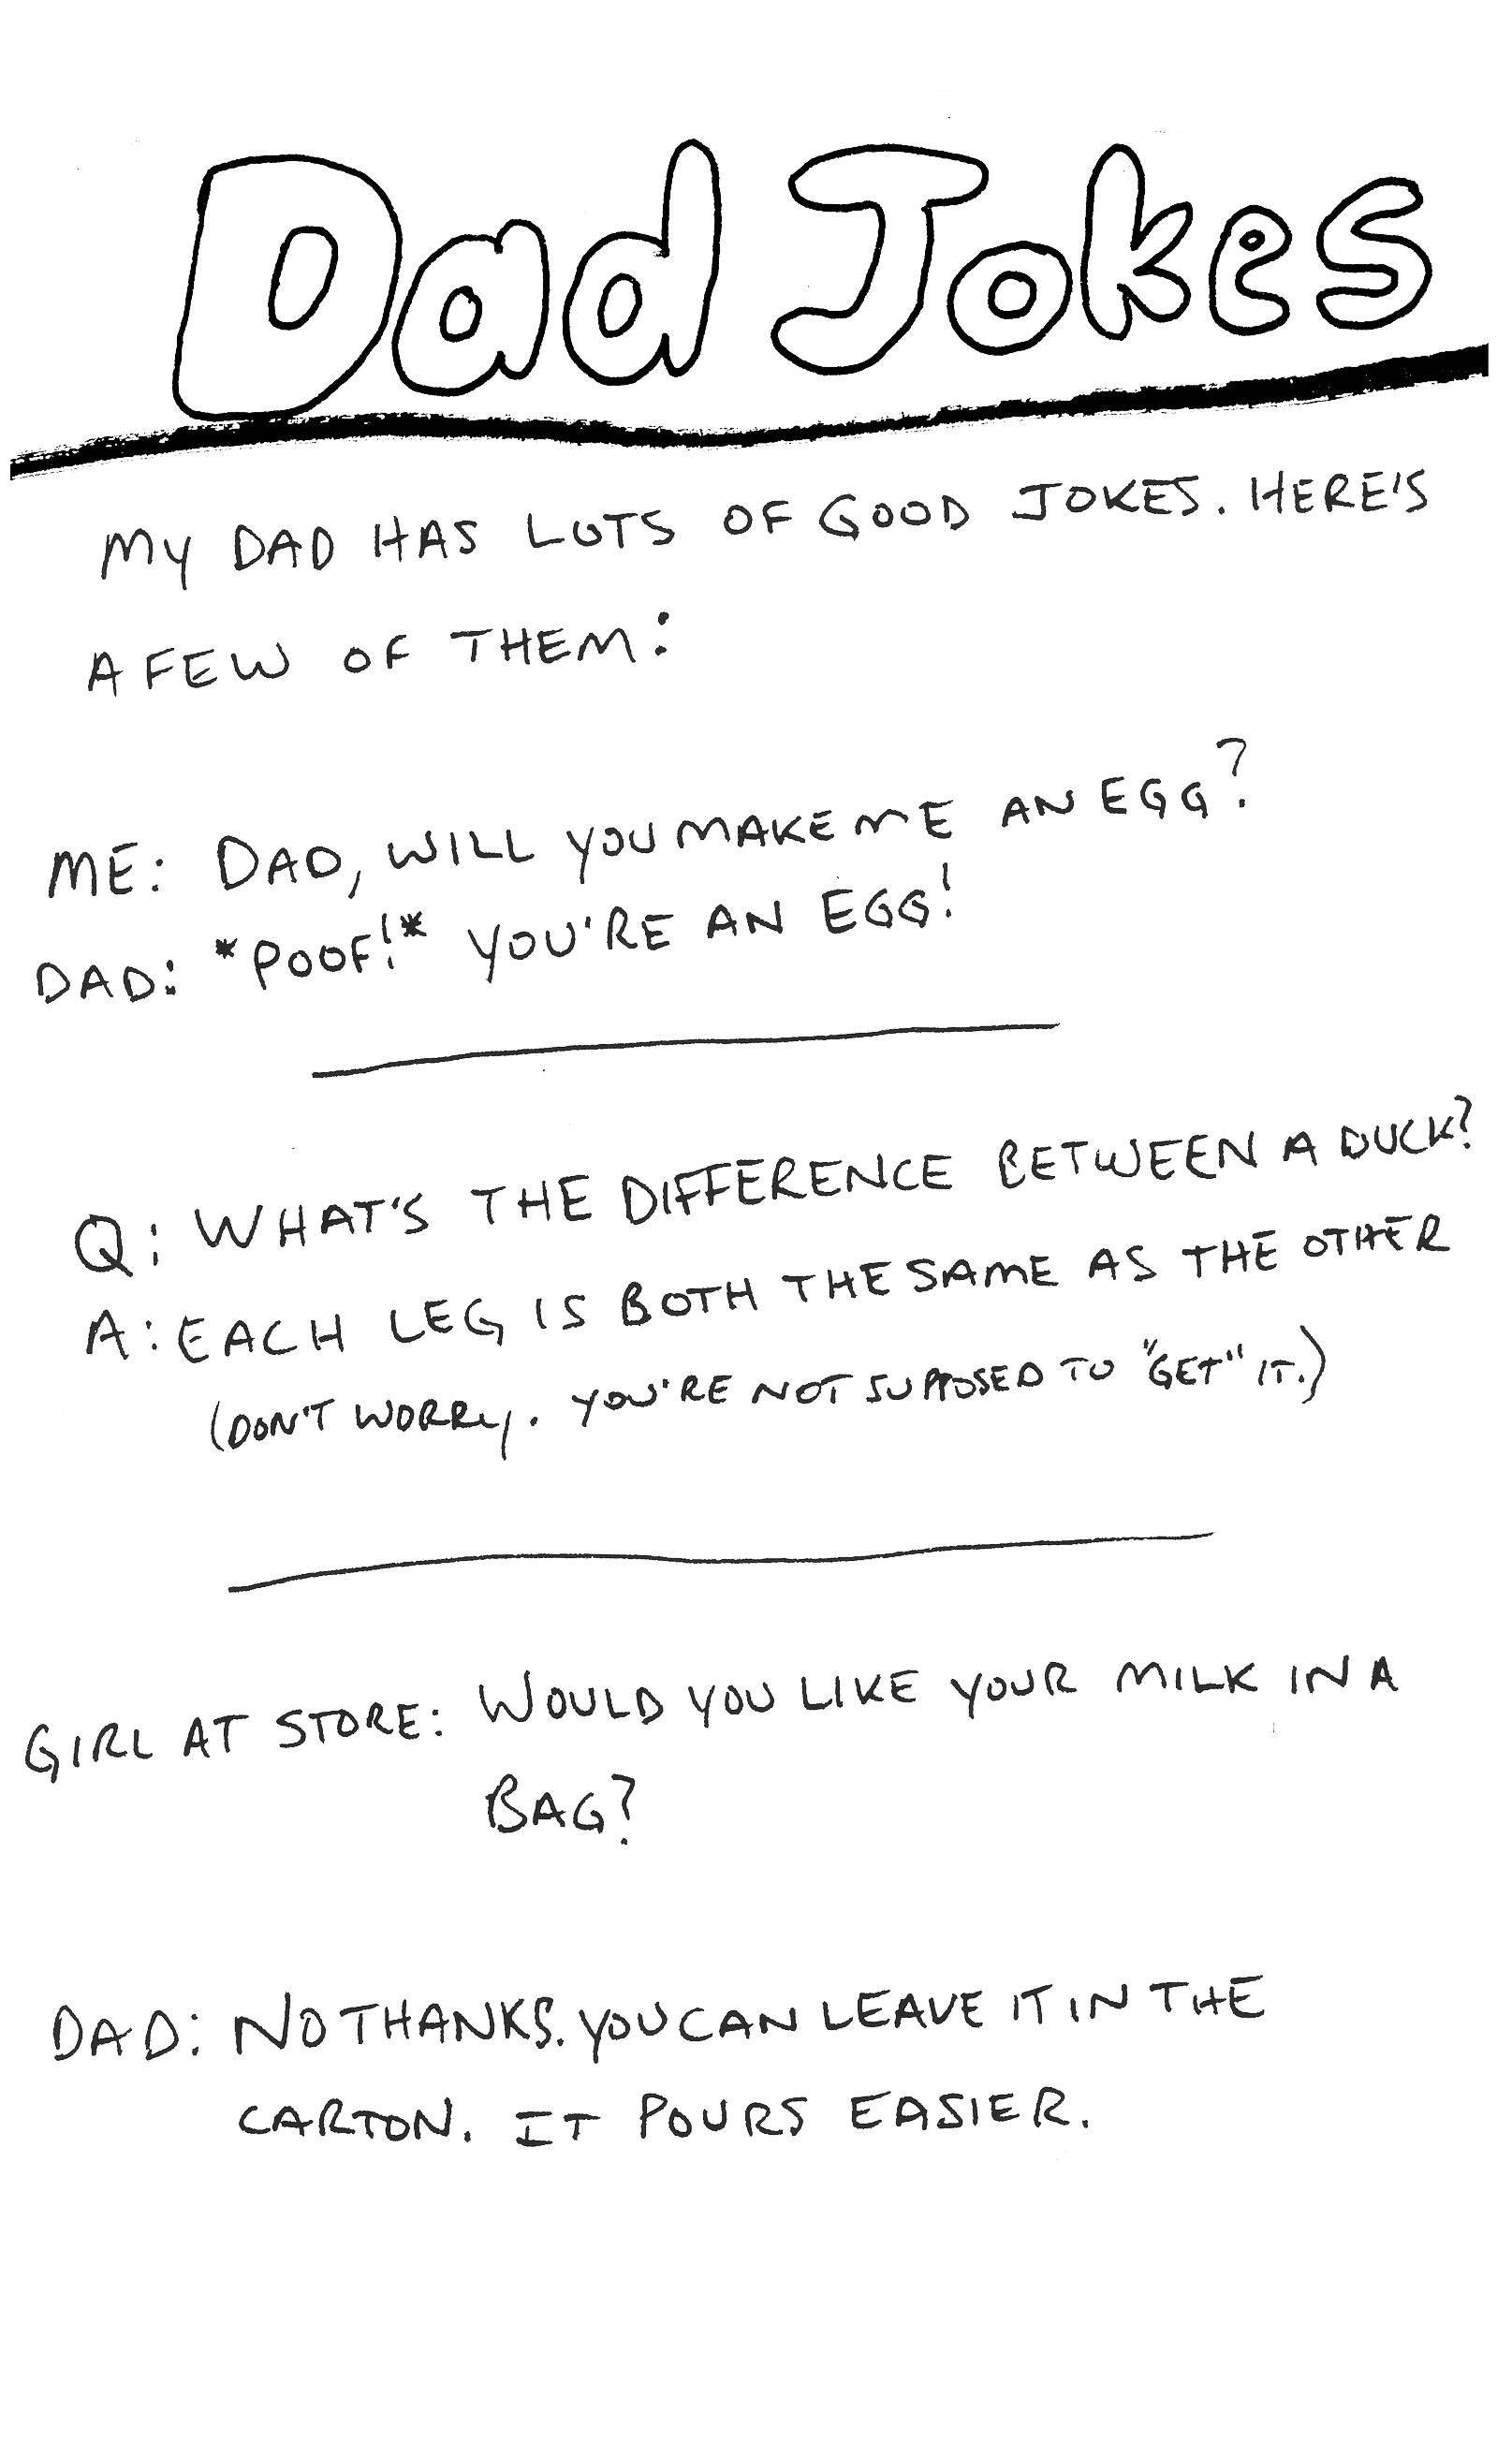 Dad Jokes
MY DAD HAS LOTS OF GOOD JOKES. HERE'S
A FEW OF THEM:
ME: DAD, WILL YOU MAKE ME AN EGG?
DAD: *POOF!* YOU'RE AN EGG!
Q: WHAT'S THE DIFFERENCE BETWEEN A DUCK?
A: EACH LEG IS BOTH THE SAME AS THE OTHER
(DON'T WORRY. YOU'RE NOT SUPPOSED TO "GET" IT.)
GIRL AT STORE: WOULD YOU LIKE YOUR MILK IN A
BAG?
DAD: NO THANKS. YOU CAN LEAVE IT IN THE
CARTON. IT POURS EASIER.